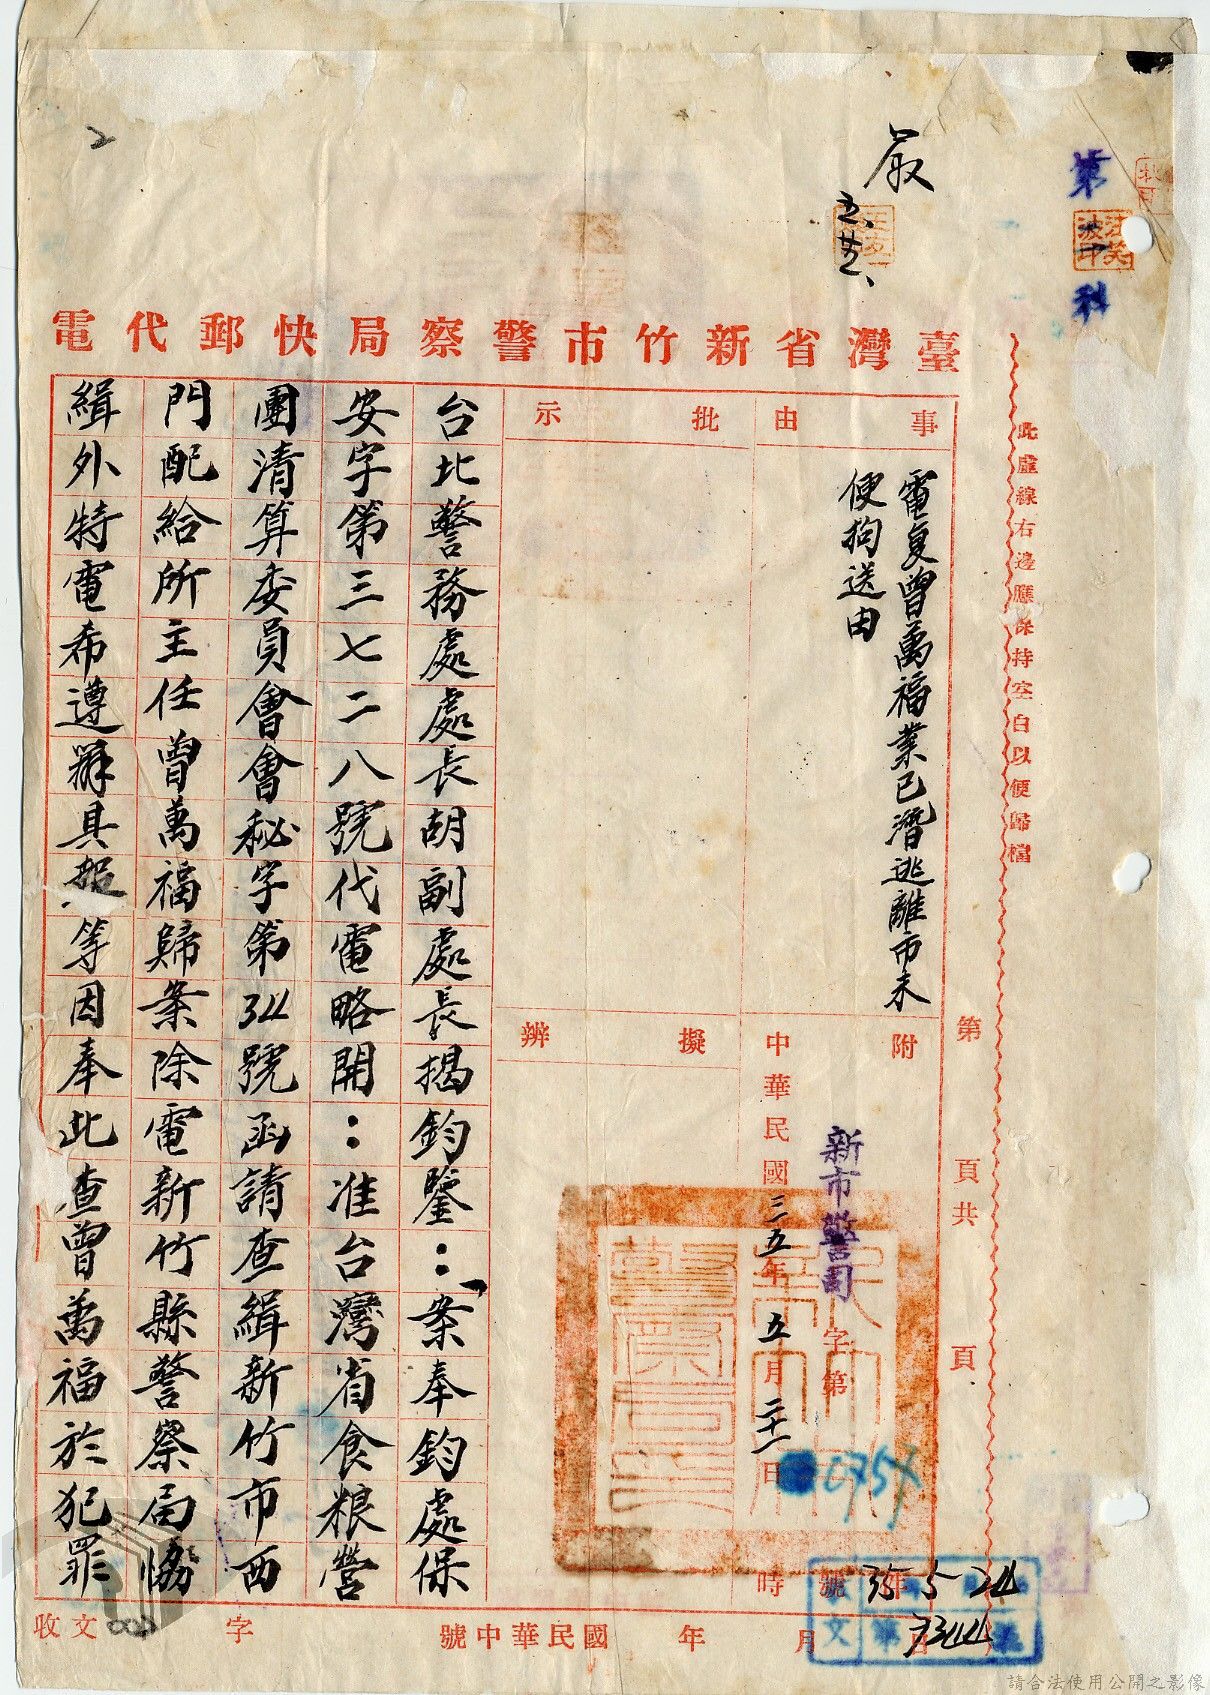 第一科
嚴
五、廿五、
臺灣省新竹市警察局快郵代電
此虛線右邊應保持空白以便歸檔
第　頁共　頁
事由
電復曾萬福業已潛逃離市未
便拘送由
批示
附
擬辦
新市警司字第
0757
號
中華民國三五年五月二十一日
時
台北警務處處長胡副處長揭鈞鑒：案奉鈞處保
安字第三七二八號代電略開：准台灣省食粮營
團清算委員會會秘字第344號函請查緝新竹市西
門配給所主任曾萬福歸案除電新竹縣警察局協
緝外特電希遵辦具報等因奉此查曾萬福於犯罪
收文　字　號中華民國　年　月　日
35 5 24
文第7344號
請合法使用公開之影像